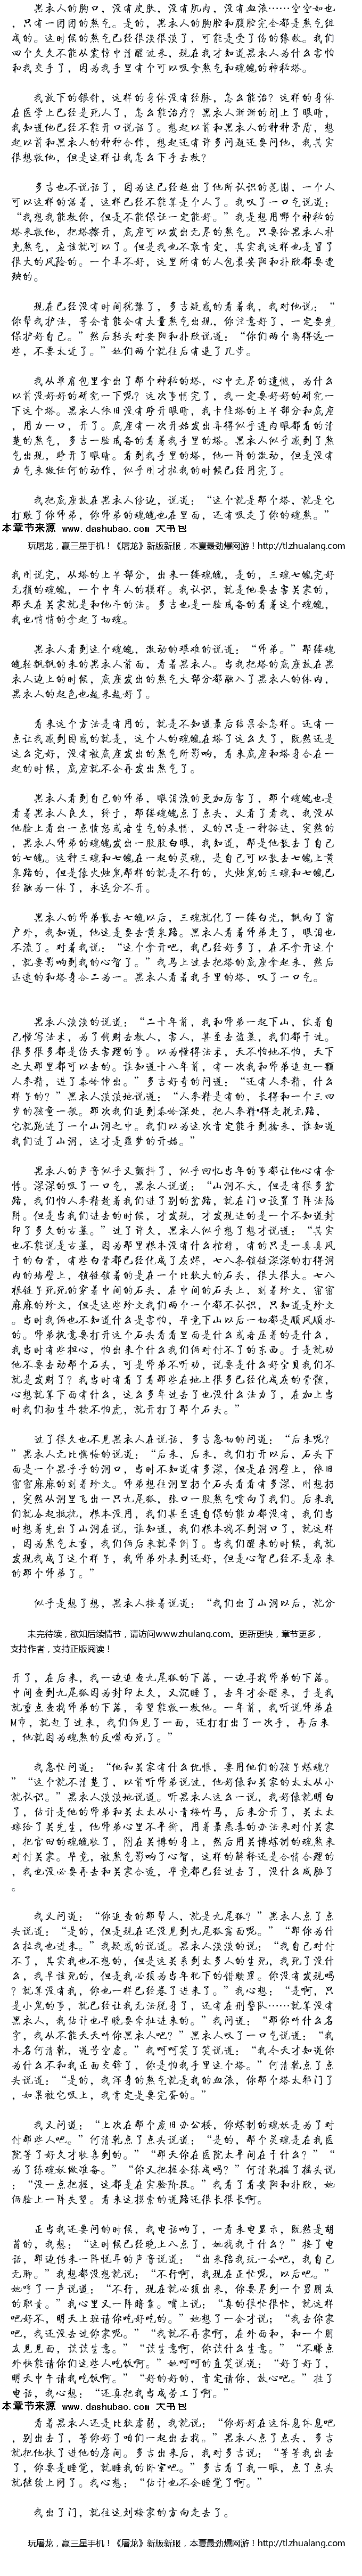 黑衣人的胸口，没有皮肤，没有肌肉，没有血液……空空如也
，只有一团团的煞气。是的，黑衣人的胸腔和腹腔完全都是煞气组
成的。这时候的煞气已经很淡很淡了，可能是受了伤的缘故。我们
四个久久不能从震惊中清醒过来，现在我才知道黑衣人为什么害怕
和我交手了，因为我手里有个可以吸食煞气和魂魄的神秘塔。
我放下的银针，这样的身体没有经脉，怎么能治？这样的身体
在医学上已经是死人了，怎么能治疗？黑衣人渐渐的闭上了眼睛，
我知道他已经不能开口说话了。想起以前和黑衣人的种种矛盾，想
起以前和黑衣人的种种合作，想起还有许多问题还要问他，我其实
很想救他，但是这样让我怎么下手去救？
多吉也不说话了，因为这已经超出了他所认识的范围，一个人
可以这样的活着，这样已经不能算是个人了。我叹了一口气说道：
“我想我能救你，但是不能保证一定能好。”我是想用哪个神秘的
塔来救他，把塔擦开，底座可以发出无尽的煞气。只要给黑衣人补
充煞气，应该就可以了。但是我也不敢肯定，其实我这样也是冒了
很大的风险的。一个弄不好，这里所有的人包裹安阳和朴欣都要遭
殃的。
现在已经没有时间犹豫了，多吉疑惑的看着我，我对他说：“
你帮我护法，等会肯能会有大量煞气出现，你注意好了，一定要先
保护好自己。”然后转头对安阳和朴欣说道：“你们两个离得远一
些，不要太近了。”她们两个就往后有退了几步。
我从单肩包里拿出了那个神秘的塔，心中无尽的遗憾，为什么
以前没好好的研究一下呢？这次事情完了，我一定要好好的研究一
下这个塔。黑衣人依旧没有睁开眼睛，我卡住塔的上半部分和底座
，用力一口，开了。底座有一次开始发出弄得似乎连肉眼都看的清
楚的煞气，多吉一脸戒备的看着我手里的塔。黑衣人似乎感到了煞
气出现，睁开了眼睛。看到我手里的塔，他一阵的激动，但是没有
力气来做任何的动作，似乎刚才拉我的时候已经用完了。
我把底座放在黑衣人俗边，说道：“这个就是那个塔，就是它
打败了你师弟，你师弟的魂魄也在里面，还有吸走了你的魂煞。”
本章节来源 www.dashubao.com 大书包
玩屠龙，赢三星手机！《屠龙》新版新服，本夏最劲爆网游！http://tl.zhualang.com
我刚说完，从塔的上半部分，出来一缕魂魄，是的，三魂七魄完好
无损的魂魄，一个中年人的模样。我认识，就是他要去害吴家的，
那天在吴家就是和他斗的法。多吉也是一脸戒备的看着这个魂魄，
我也悄悄的拿起了切魂。
黑衣人看到这个魂魄，激动的艰难的说道：“师弟。”那缕魂
魄轻飘飘的来的黑衣人前面，看着黑衣人。当我把塔的底座放在黑
衣人边上的时候，底座发出的煞气大部分都融入了黑衣人的体内，
黑衣人的起色也越来越好了。
看来这个方法是有用的，就是不知道最后结果会怎样。还有一
点让我感到困惑的就是，这个人的魂魄在塔了这么久了，既然还是
这么完好，没有被底座发出的煞气所影响，看来底座和塔身合在一
起的时候，底座就不会再发出煞气了。
黑衣人看到自己的师弟，眼泪流的更加厉害了，那个魂魄也是
看着黑衣人良久，终于，那缕魂魄点了点头，又看了看我，我没从
他脸上看出一点愤怒或者生气的表情，又的只是一种豁达，突然的
，黑衣人师弟的魂魄发出一股股白眼，我知道，那是他散去了自己
的七魄。这种三魂和七魄在一起的灵魂，是自己可以散去七魄上黄
泉路的，但是像火烛鬼那样的就是不行的，火烛鬼的三魂和七魄已
经融为一体了，永远分不开。
黑衣人的师弟散去七魄以后，三魂就化了一缕白光，飘向了窗
户外，我知道，他这是要去黄泉路。黑衣人看着师弟走了，眼泪也
不流了。对着我说：“这个拿开吧，我已经好多了，在不拿开这个
，就要影响到我的心智了。”我马上过去把塔的底座拿起来，然后
迅速的和塔身合二为一。黑衣人看着我手里的塔，叹了一口气。
黑衣人淡淡的说道：“二十年前，我和师弟一起下山，仗着自
己懂写法术，为了钱财去救人，害人，甚至去盗墓，我们都干过。
很多很多都是伤天害理的事。以为懂得法术，天不怕地不怕，天下
之大那里都可以去的。谁知道十八年前，有一次我和师弟追赶一颗
人参精，进了秦岭伸出。”多吉好奇的问道：“还有人参精，什么
样子的？”黑衣人淡淡地说道：“人参精是有的，长得和一个三四
岁的孩童一般。那次我们追到秦岭深处，把人参精得走脱无路，
它就跑进了一个山洞之中。我们以为这次肯定能手到擒来，谁知道
我们进了山洞，这才是噩梦的开始。”
黑衣人的声音似乎又颤抖了，似乎回忆当年的事都让他心有余
悸。深深的吸了一口气，黑衣人说道：“山洞不大，但是有很多岔
路，我们怕人参精趁着我们进了别的岔路，就在门口设置了阵法陷
阱。但是当我们进去的时候，才发现，才发现进的是一个不知道封
印了多久的古墓。”过了许久，黑衣人似乎想了想才说道：“其实
也不能说是古墓，因为那里根本没有什么棺椁，有的只是一具具风
干的白骨，有些白骨都已经化成了灰烬，七八条锁链深深的打得洞
内的墙壁上，锁链锁着的是在一个比较大的石头，很大很大。七八
根链子死死的穿着中间的石头，在中间的石头上，刻着符文，密密
麻麻的符文，但是这些符文我们两个一个都不认识，只知道是符文
。当时我俩也不知道什么是害怕，毕竟下山以后一切都是顺风顺水
的。师弟执意要打开这个石头看看里面是什么或者压着的是什么，
我当时有些担心，怕出来个什么我们俩对付不了的东西。于是就劝
他不要去动那个石头，可是师弟不听劝，说要是什么好宝贝我们不
就是发财了？我当时有看了看那些在地上很多已经化成灰的骨骸，
心想就算下面有什么，这么多年过去了也没什么法力了，在加上当
时我们初生牛犊不怕虎，就开打了那个石头。”
过了很久也不见黑衣人在说话，多吉急切的问道：“后来呢？
”黑衣人无比懊悔的说道：“后来，后来，我们打开以后，石头下
面是一个黑乎乎的洞口，当时不知道有多深，但是在洞壁上，依旧
密密麻麻的刻着符文。师弟想往洞里扔个石头看看有多深，刚想扔
，突然从洞里飞出一只九尾狐，张口一股煞气喷向了我们。后来我
们就奋起抵抗，根本没用，我们甚至连自保的能力都没有，我们当
时想着先出了山洞在说，谁知道，我们根本找不到洞口了，就这样
，因为煞气太重，我们俩后来就晕倒了。当我们醒来的时候，我就
发现我成了这个样子，我师弟外表到还好，但是心智已经不是原来
的那个师弟了。”
似乎是想了想，黑衣人接着说道：“我们出了山洞以后，就分
未完待续，欲知后续情节，请访问www.zhulang.com。更新更快，章节更多，
支持作者，支持正版阅读！
开了，在后来，我一边追查九尾狐的下落，一边寻找师弟的下落。
中间查到九尾狐因为封印太久，又沉睡了，去年才会醒来，于是我
就重点查找师弟的下落，希望能救一救他。一年前，我听说师弟在
M市，就赶了过来，我们俩见了一面，还打打出了一次手，再后来
，他就因为魂煞的反噬而死了。”
我急忙问道：“他和吴家有什么仇恨，要用他们的孩子炼魂？
”“这个就不清楚了，以前听师弟说过，他好像和吴家的太太从小
就认识。”黑衣人淡淡地说道。听黑衣人这么一说，我好像就明白
了，估计是他的师弟和吴太太从小青梅竹马，后来分开了，吴太太
嫁给了吴先生，他师弟心里不平衡，用着最恶毒的办法来对付吴家
，把官田的魂魄收了，附在吴博的身上，然后用吴博炼制的魂煞来
对付吴家。毕竟，被煞气影响了心智，这样的解释还是合情合理的
，我也没必要再去和吴家合适，毕竟都已经过去了，没什么威胁了
。
我又问道：“你追查的那帮人，就是九尾狐？”黑衣人点了点
头说道：“是的，但是现在还没见到九尾狐露面呢。”“那你为什
么拉我也进来。”我疑惑的说道。黑衣人淡淡的说：“我自己对付
不了，其实我也不想的，但是这关系到太多人的生死，我死了没什
么，我早该死的，但是我必须为当年犯下的错赎罪。你没有发现吗
？就算没有我，你也一样已经卷了进来了。”我心想：“是啊，只
是小鬼的事，就已经让我无法脱身了，还有在刑警队……就算没有
黑衣人，我估计也早晚要牵扯进来的。”我问道：“那你叫什么名
字，我从不能天天叫你黑衣人吧？”黑衣人叹了一口气说道：“我
本名何清乾，道号空虚。”我呵呵笑了笑说道：“我今天才知道你
为什么不和我正面交锋了，你是怕我手里这个塔。”何清乾点了点
头说道：“是的，我浑身的煞气就是我的血液，你那个塔太邪门了
，如果被它吸上，我肯定是要完蛋的。”
我又问道：“上次在那个废旧办公楼，你炼制的魂妖是为了对
付那些人吧。”何清乾点了点头说道：“是的，那个灵魂是在我医
院等了好久才收集到的。”“那天你在医院太平间在干什么？”“
为了炼魂妖做准备。”“你又把握会炼成吗？”何清乾摇了摇头说
：“没一点把握，这都是在实验阶段。”我看了看安阳和朴欣，她
俩脸上一阵失望。看来这摸索的道路还很长很长啊。
正当我还要问的时候，我电话响了，一看来电显示，既然是胡
茵的，我想：“这时候已经晚上八点了，她找我干什么？”接了电
话，那边传来一阵悦耳的声音说道：“出来陪我玩一会吧，我自己
无聊。”我想都没想就说：“不行啊，我现在正忙呢，以后吧。”
她哼了一声说道：“不行，现在就必须出来，你要尽到一个男朋友
的职责。”我心里又一阵暗骂。嘴上说：“真的很忙很忙，就这样
吧好不，明天上班请你吃好吃的。”她想了一会才说：“我去你家
吧，我还没去过你家呢。”“我就不再家啊，在外面和，和一个朋
友见见面，谈谈生意。”“谈生意啊，你谈什么生意。”“不赚点
外快能请你们这些人吃饭啊。”她呵呵的直笑说道：“好了好了，
明天中午请我吃饭啊。”“好的好的，肯定请你，放心吧。”挂了
电话，我心想：“还真把我当成劳工了啊。”
本章节来源 www.dashubao.com 大书包
看着黑衣人还是比较虚弱，我就说：“你好好在这休息休息吧
，别出去了，等你好了咱们一起出去找。”黑衣人点了点头，多吉
就把他扶了进他的房间。多吉出来后，我对多吉说：“等等我出去
了，你要是睡觉，就睡我的卧室吧。”多吉看了我一眼，点了点头
就继续上网了。我心想：“估计也不会睡觉了啊。”
我出了门，就往这刘格家的方向走去了。
玩屠龙，赢三星手机！《屠龙》新版新服，本夏最劲爆网游！http://tl.zhualang.com